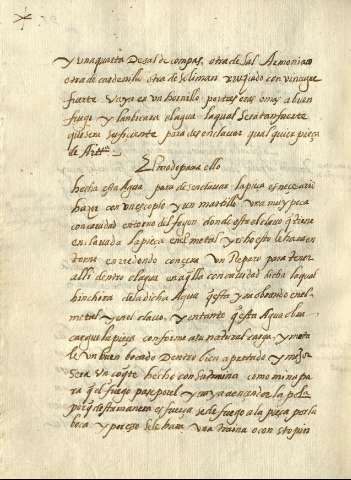 y una quarta De sal de compas, otra de sal Armoniaco
otra de cardenillo otra de soliman rruciado con vinagre
fuerte Vaya en un hornillo por tres oras a buen
fuego y lanbicara el agua la qual sera tan fuerte
que sera suficiente para desenclavar qual quier pieça
de Artt.ª
El modo para ello
hecha esta Agua para desenclavar la pieça es necesario
hazer con un escoplo y un martillo una muy poca
concavidad en torno del fogon donde esta el clavo q̃ tiene
enclavada la pieça en el metal y echo esto le haran en
torno en redondo con cera un Reparo para tener
alli dentro el agua en aq̃lla concavidad hecha la qual
hinchira de la dicha Agua q̃ esta obrando en el
metal y en el clavo, y en tanto q̃ esta Agua obra
cargue la pieça conforme a su natural carga, y meta
le un buen bocado Dentro bien apretado y mejor
sera Un coq̃te hecho con
ra q̃ el fuego pase por el y vaya a encender la polª
porq̃ desta manera es fuerça se de fuego a la pieça por la
boca y para eso se le hara una trama o con stopin